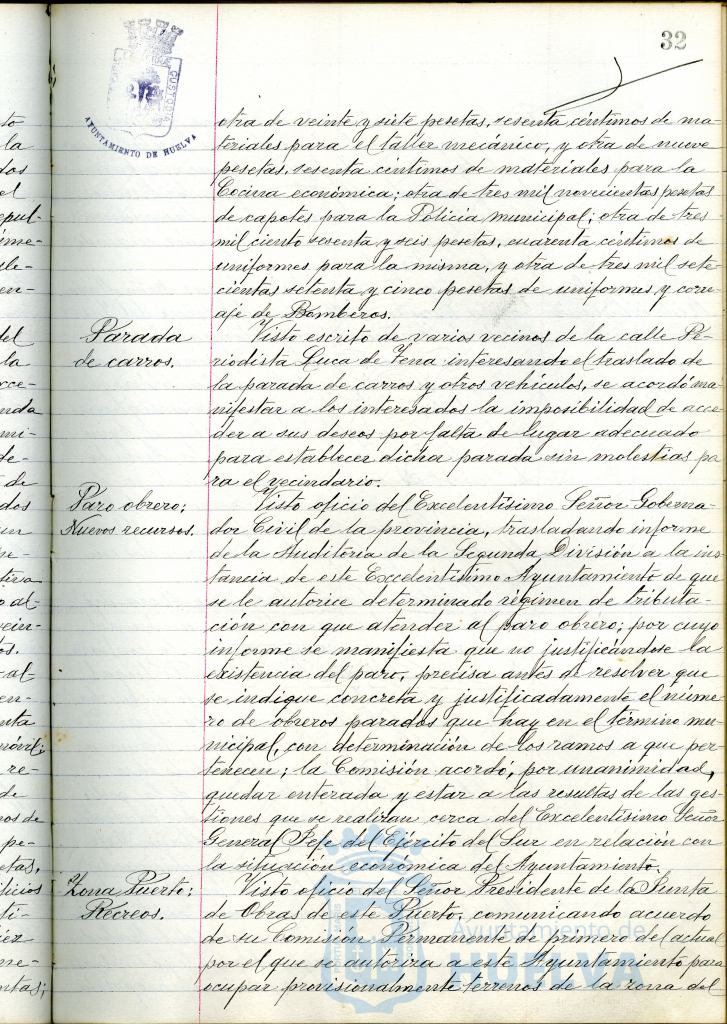 32
CUSTODIA
AYUNTAMIENTO DE HUELVA
otra de veinte y siete pesetas, sesenta céntimos de ma-
teriales para el taller mecánico, y otra de nueve
pesetas, sesenta céntimos de materiales para la
Cocina económica; otra de tres mil novecientas pesetas
de capotes para la Policia municipal; otra de tres
mil ciento sesenta y seis pesetas, cuarenta céntimos de
uniformes para la misma, y otra de tres mil sete-
cientas setenta y cinco pesetas de uniformes y corre-
aje de Bomberos.
Parada
de carros.
Visto escrito de varios vecinos de la calle Pe-
riodista Luca de Tena interesando el traslado de
la parada de carros y otros vehículos, se acordó ma
nifestar a los interesados la imposibilidad de acce-
der a sus deseos por falta de lugar adecuado
para establecer dicha parada sin molestias pa
ra el vecindario.
Paro obrero;
Nuevos recursos.
Visto oficio del Excelentísimo Señor Goberna-
dor Civil de la provincia, trasladando informe
de la Auditoría de la Segunda División a la ins
tancia de este Excelentísimo Ayuntamiento de que
se le autorice determinado régimen de tributa-
ción con que atender al paro obrero; por cuyo
informe se manifiesta que no justificándose la
existencia del paro, precisa antes de resolver que
se indique concreta y justificadamente el núme
ro de obreros parados que hay en el término mu-
nicipal, con determinación de los ramos a que per-
tenecen; la Comisión acordó, por unanimidad,
quedar enterada y estar a las resultas de las ges-
tiones que se realizan cerca del Excelentísimo Señor
General Jefe del Ejército del Sur en relación con
la situación económica del Ayuntamiento.
Zona Puerto:
Recreos.
Visto oficio del Señor Presidente de la Junta
de Obras de este Puerto, comunicando acuerdo
de su Comisión Permanente de primero del actual
por el que se autoriza a este Ayuntamiento para
ocupar provisionalmente terrenos de la zona del
Ayuntamiento de
HUELVA